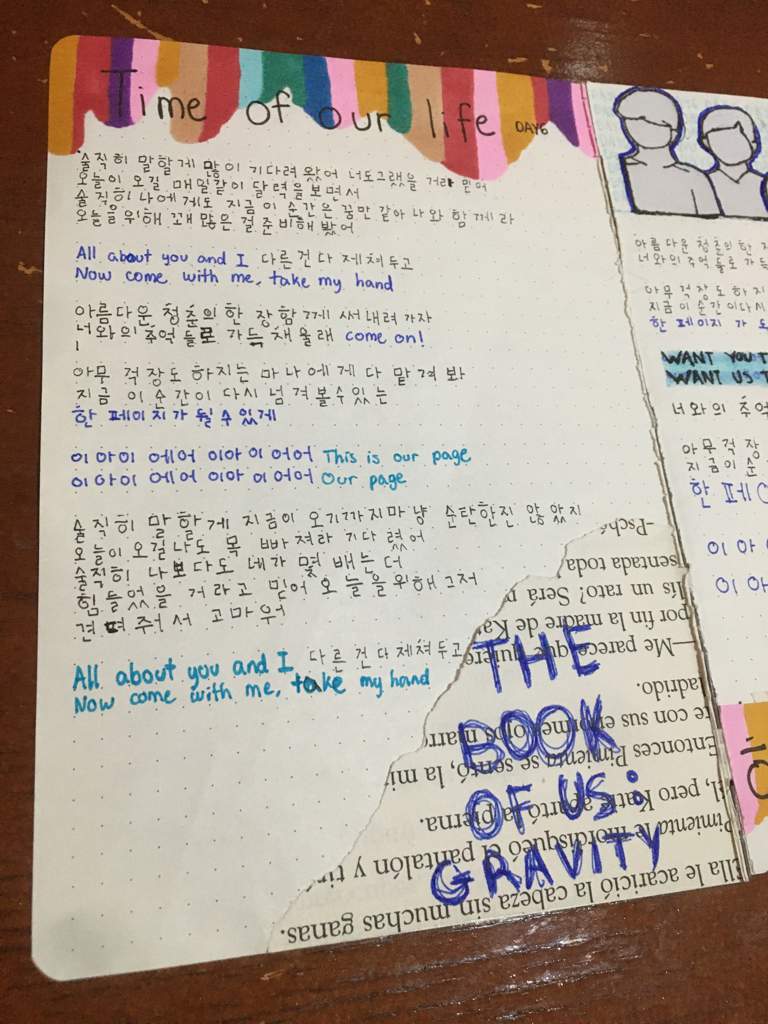 Time of our life DAY6
솔직히 말할게 많이 기다려 왔어 너도그랬을 거라 믿어
오늘이 오길 매일같이 달력을보면서
솔직히 나에게도 지금 이 순간은 꿈만 같아 나와 함께라
오늘을위해 꽤 많은 걸 준비해 봤어
All about you and I 다른 건 다 제쳐 두고
Now come with me, take my hand
아름다운 청춘의 한 장 함께 써 내려 가자
너와의 추억 들로 가득 채울래 come on!
아무 걱정도 하지는 마 나에게 다 맡겨 봐
지금 이 순간이 다시 넘겨볼수있는
한 페이지가 될 수 있게
이 아이 에어 이아 이 어어 This is our page
이 아이 에어 이아 이 어어 Our page
솔직히 말할게 지금이 오기까지마냥 순탄한진 않았지
오늘이 오길 나도 목 빠져라 기다렸어
솔직히 나보다도 네가 몇 배는 더
힘들었을 거라고 믿어 오늘을위해 그저
견뎌줘서 고마워
All about you and I 다른 건 다 제쳐 두고
Now come with me, take my hand
THE
BOOK
OF US:
GRAVITY
Ella le acarició la cabeza sin muchas ganas.
Pimienta le mordisqueó el pantalón y
pero Katie apartó la pierna.
Entonces Pimienta se sentó, la mi
te con sus enormes ojos marr
ladrido.
—Me parece que quiere
por fin la madre de Ka
un rato! Será
sentada toda
-Psché
아름다운 청춘의 한
너와의 추억 들로 가득
아무 걱정도 하지
지금 이 순간이다시
한 페이지 가
WANT YOU T
WANT US T
너와의 추억
아무 걱정
지금이 순
한 페이
이 아
이 아